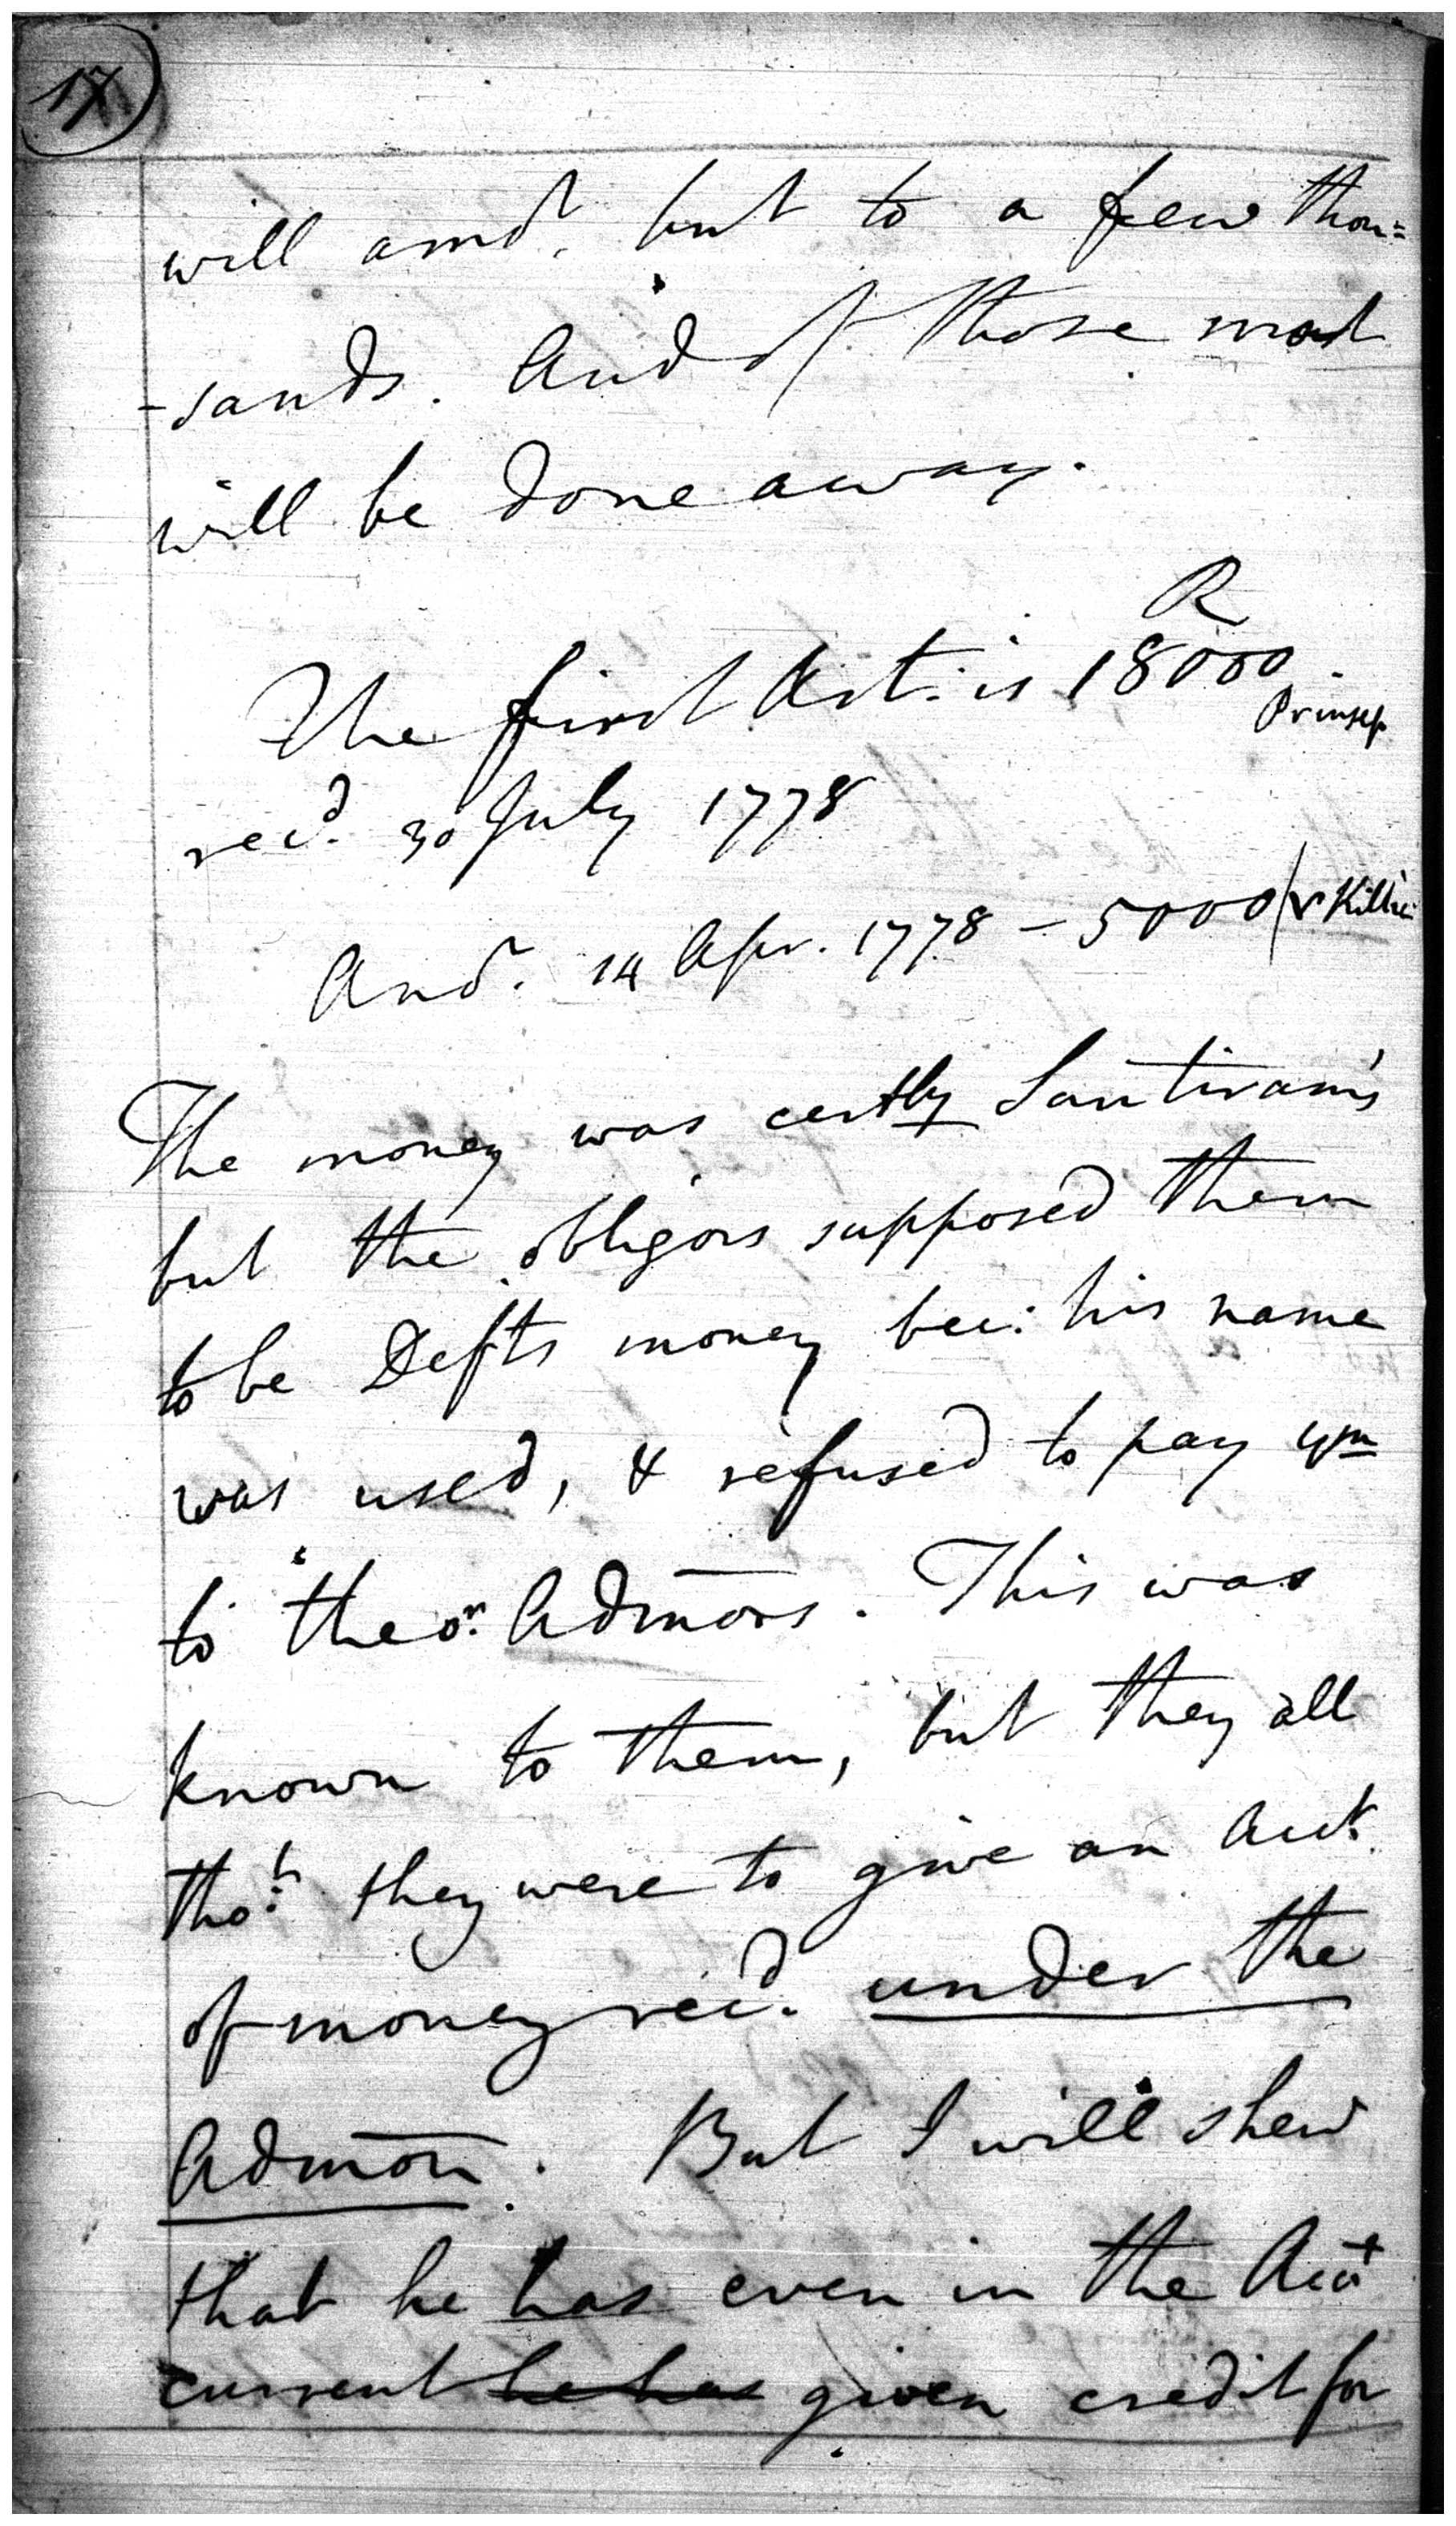 17
will amt. but to a few thou=
-sands. And of those most
will be done away.
R
The first Art: is 18000
Prinsep
recd. 30 July 1778
And. 14 Apr. 1778 - 5000
The money was certly Santiram's
but the obligors supposed them
to be Defts money bec: his name
was used, & refused to pay ym
to the or. Admors. This was
known to them, but they all
thot. they were to give an Acct.
of money recd. under the
Admon. But I will shew
that he has even in the Acct
current he has given credit for